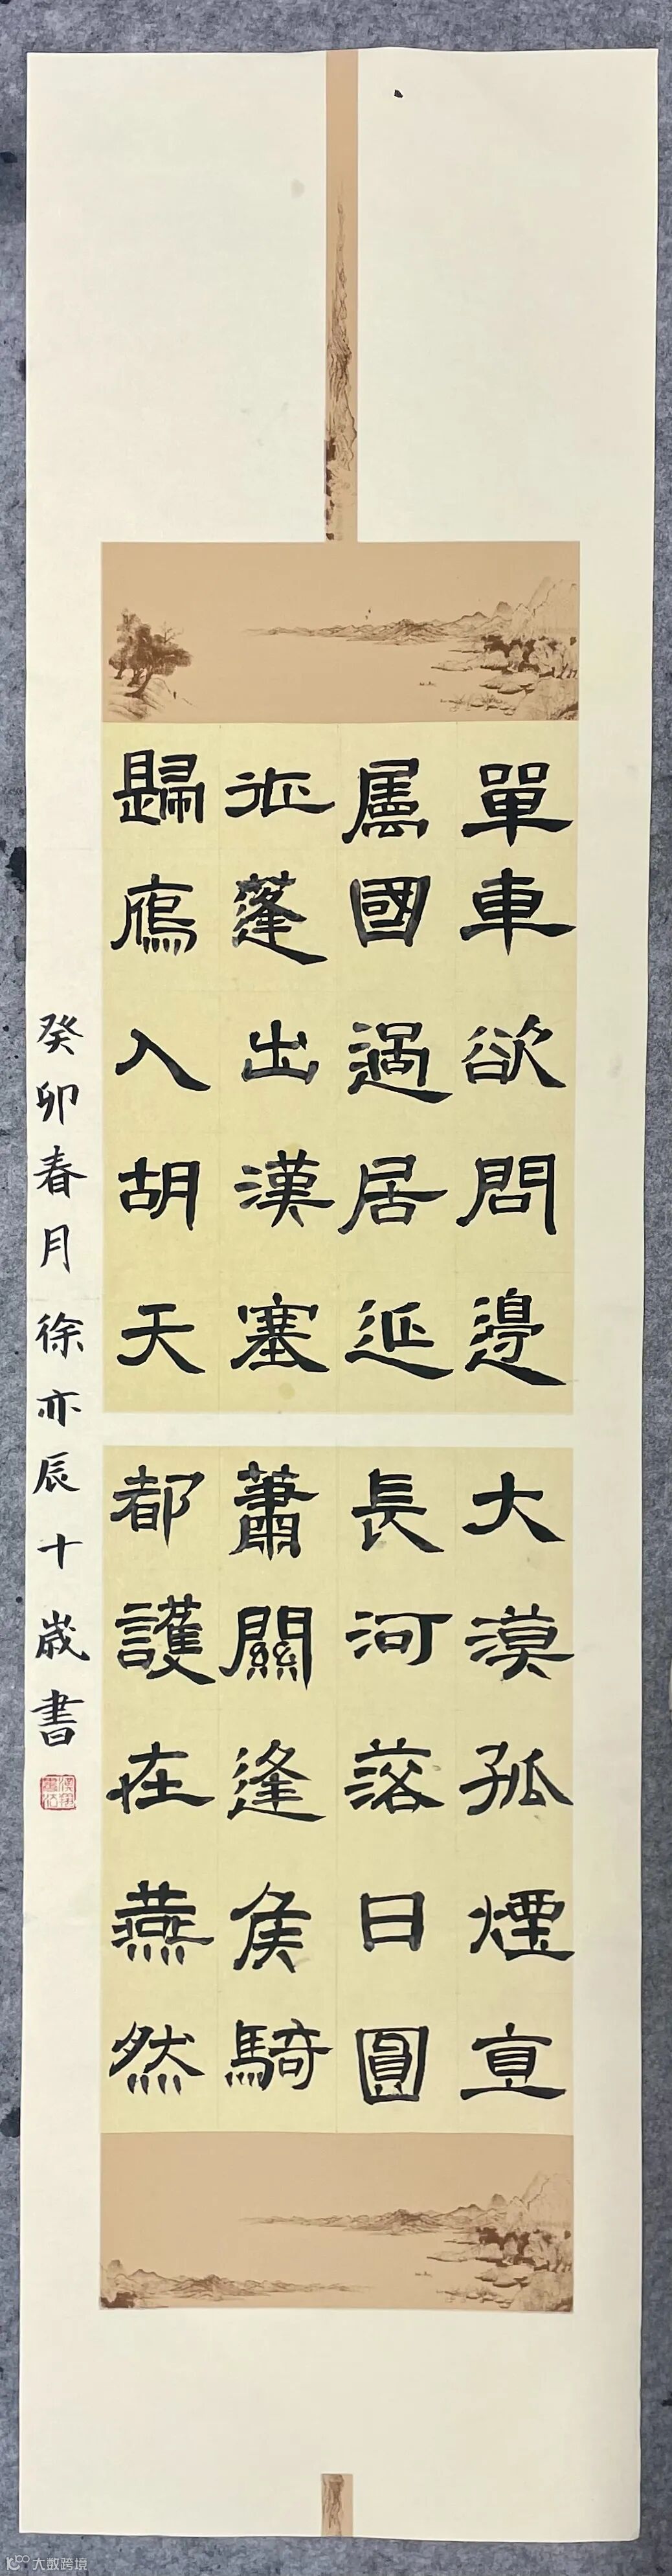 單車欲問邊
屬國過居延
征蓬出漢塞
歸鴈入胡天
大漠孤煙直
長河落日圓
蕭關逢侯騎
都護在燕然
癸卯春月徐亦辰十歲書
大数跨境